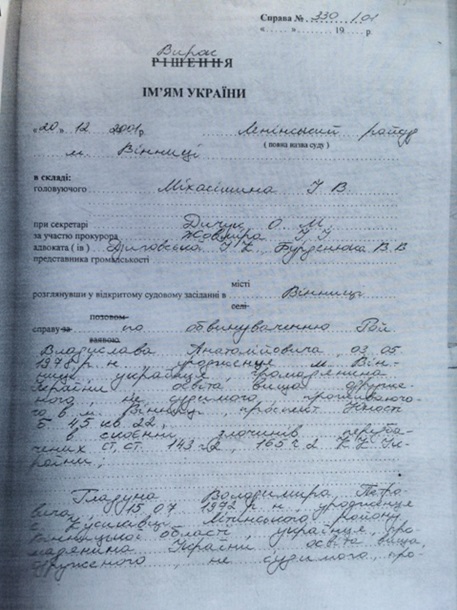 Справа № 330 /01
« » 19 р.
Вирок
РІШЕННЯ
ІМ'ЯМ УКРАЇНИ
«20» 12 2001р. Ленінський райсуд
м. Вінниці ( повна назва суду )
в складі:
головуючого Міхасішина І В
при секретарі Дичук О М
за участю прокурора
адвоката ( ів ) В В
представника громадськості
місті
розглянувши у відкритому судовому засіданні в Вінниці
селі
позовом
справу за по обвинуваченню Гой
заявою
Владислава Анатолійовича, 03 05
1978 р н, уродженця м Він-
ниці, українця, громадянина
України освіта вища одруже-
ного, не судимого, проживаючо-
го в м. Вінниці, проспект Юності
б 45 кв 22,
в скоєнні злочинів передба-
чених ст.ст. 143 ч 2, 165 ч 2 К К Ук-
раїни,
Гладуна Володимира Петро-
вича, 15 07 1972 р н уродженця
с району
Вінницької області, українця, гро-
мадянина України освіта вища,
одруженого, не судимого, про-